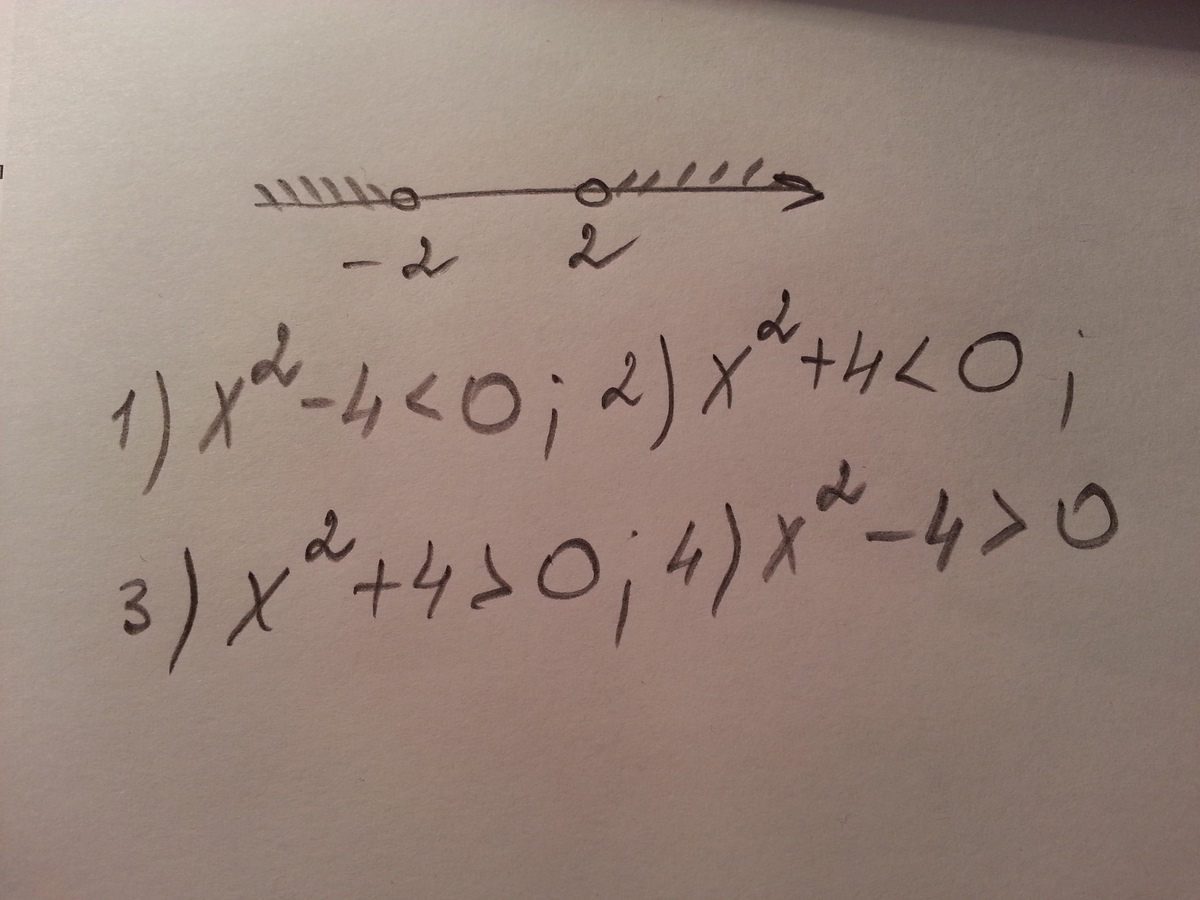 -2 2
1) x²-4<0; 2) x²+4<0;
3) x²+4>0; 4) x²-4>0